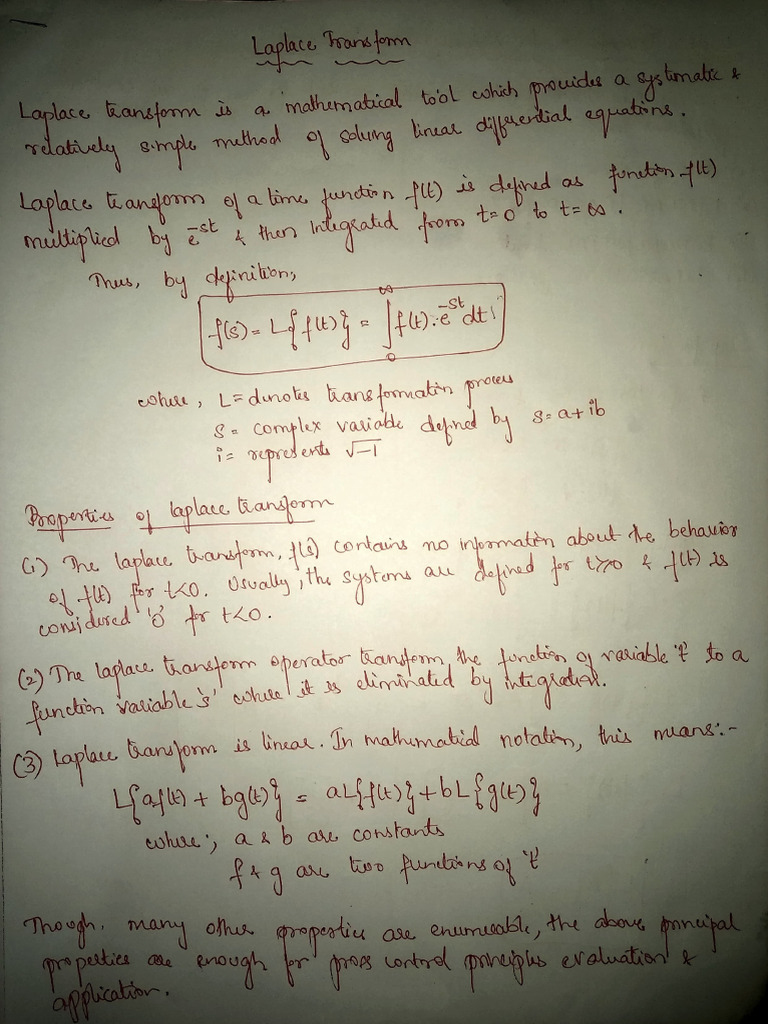 Laplace Transform
Laplace transform is a mathematical tool which provides a systematic &
relatively simple method of solving linear differential equations.
Laplace transform of a time function f(t) is defined as function f(t)
multiplied by e^-st & then Integrated from t=0 to t=∞.
Thus, by definition,
f(s) = L{f(t)} = ∫₀^∞ f(t).e^-st dt
where, L = denotes transformation process
s = complex variable defined by s = a + ib
i = represents √-1
Properties of laplace transform
(1) The laplace transform, f(s) contains no information about the behavior
of f(t) for t<0. Usually, the systems are defined for t≥0 & f(t) is
considered '0' for t<0.
(2) The laplace transform operator transform the function of variable 't' to a
function variable 's' where it is eliminated by integration.
(3) Laplace transform is linear. In mathematical notation, this means:-
L{af(t) + bg(t)} = aL{f(t)} + bL{g(t)}
where; a & b are constants
f & g are two functions of 't'
Though, many other properties are enumerable, the above principal
properties are enough for process control principles evaluation &
application.